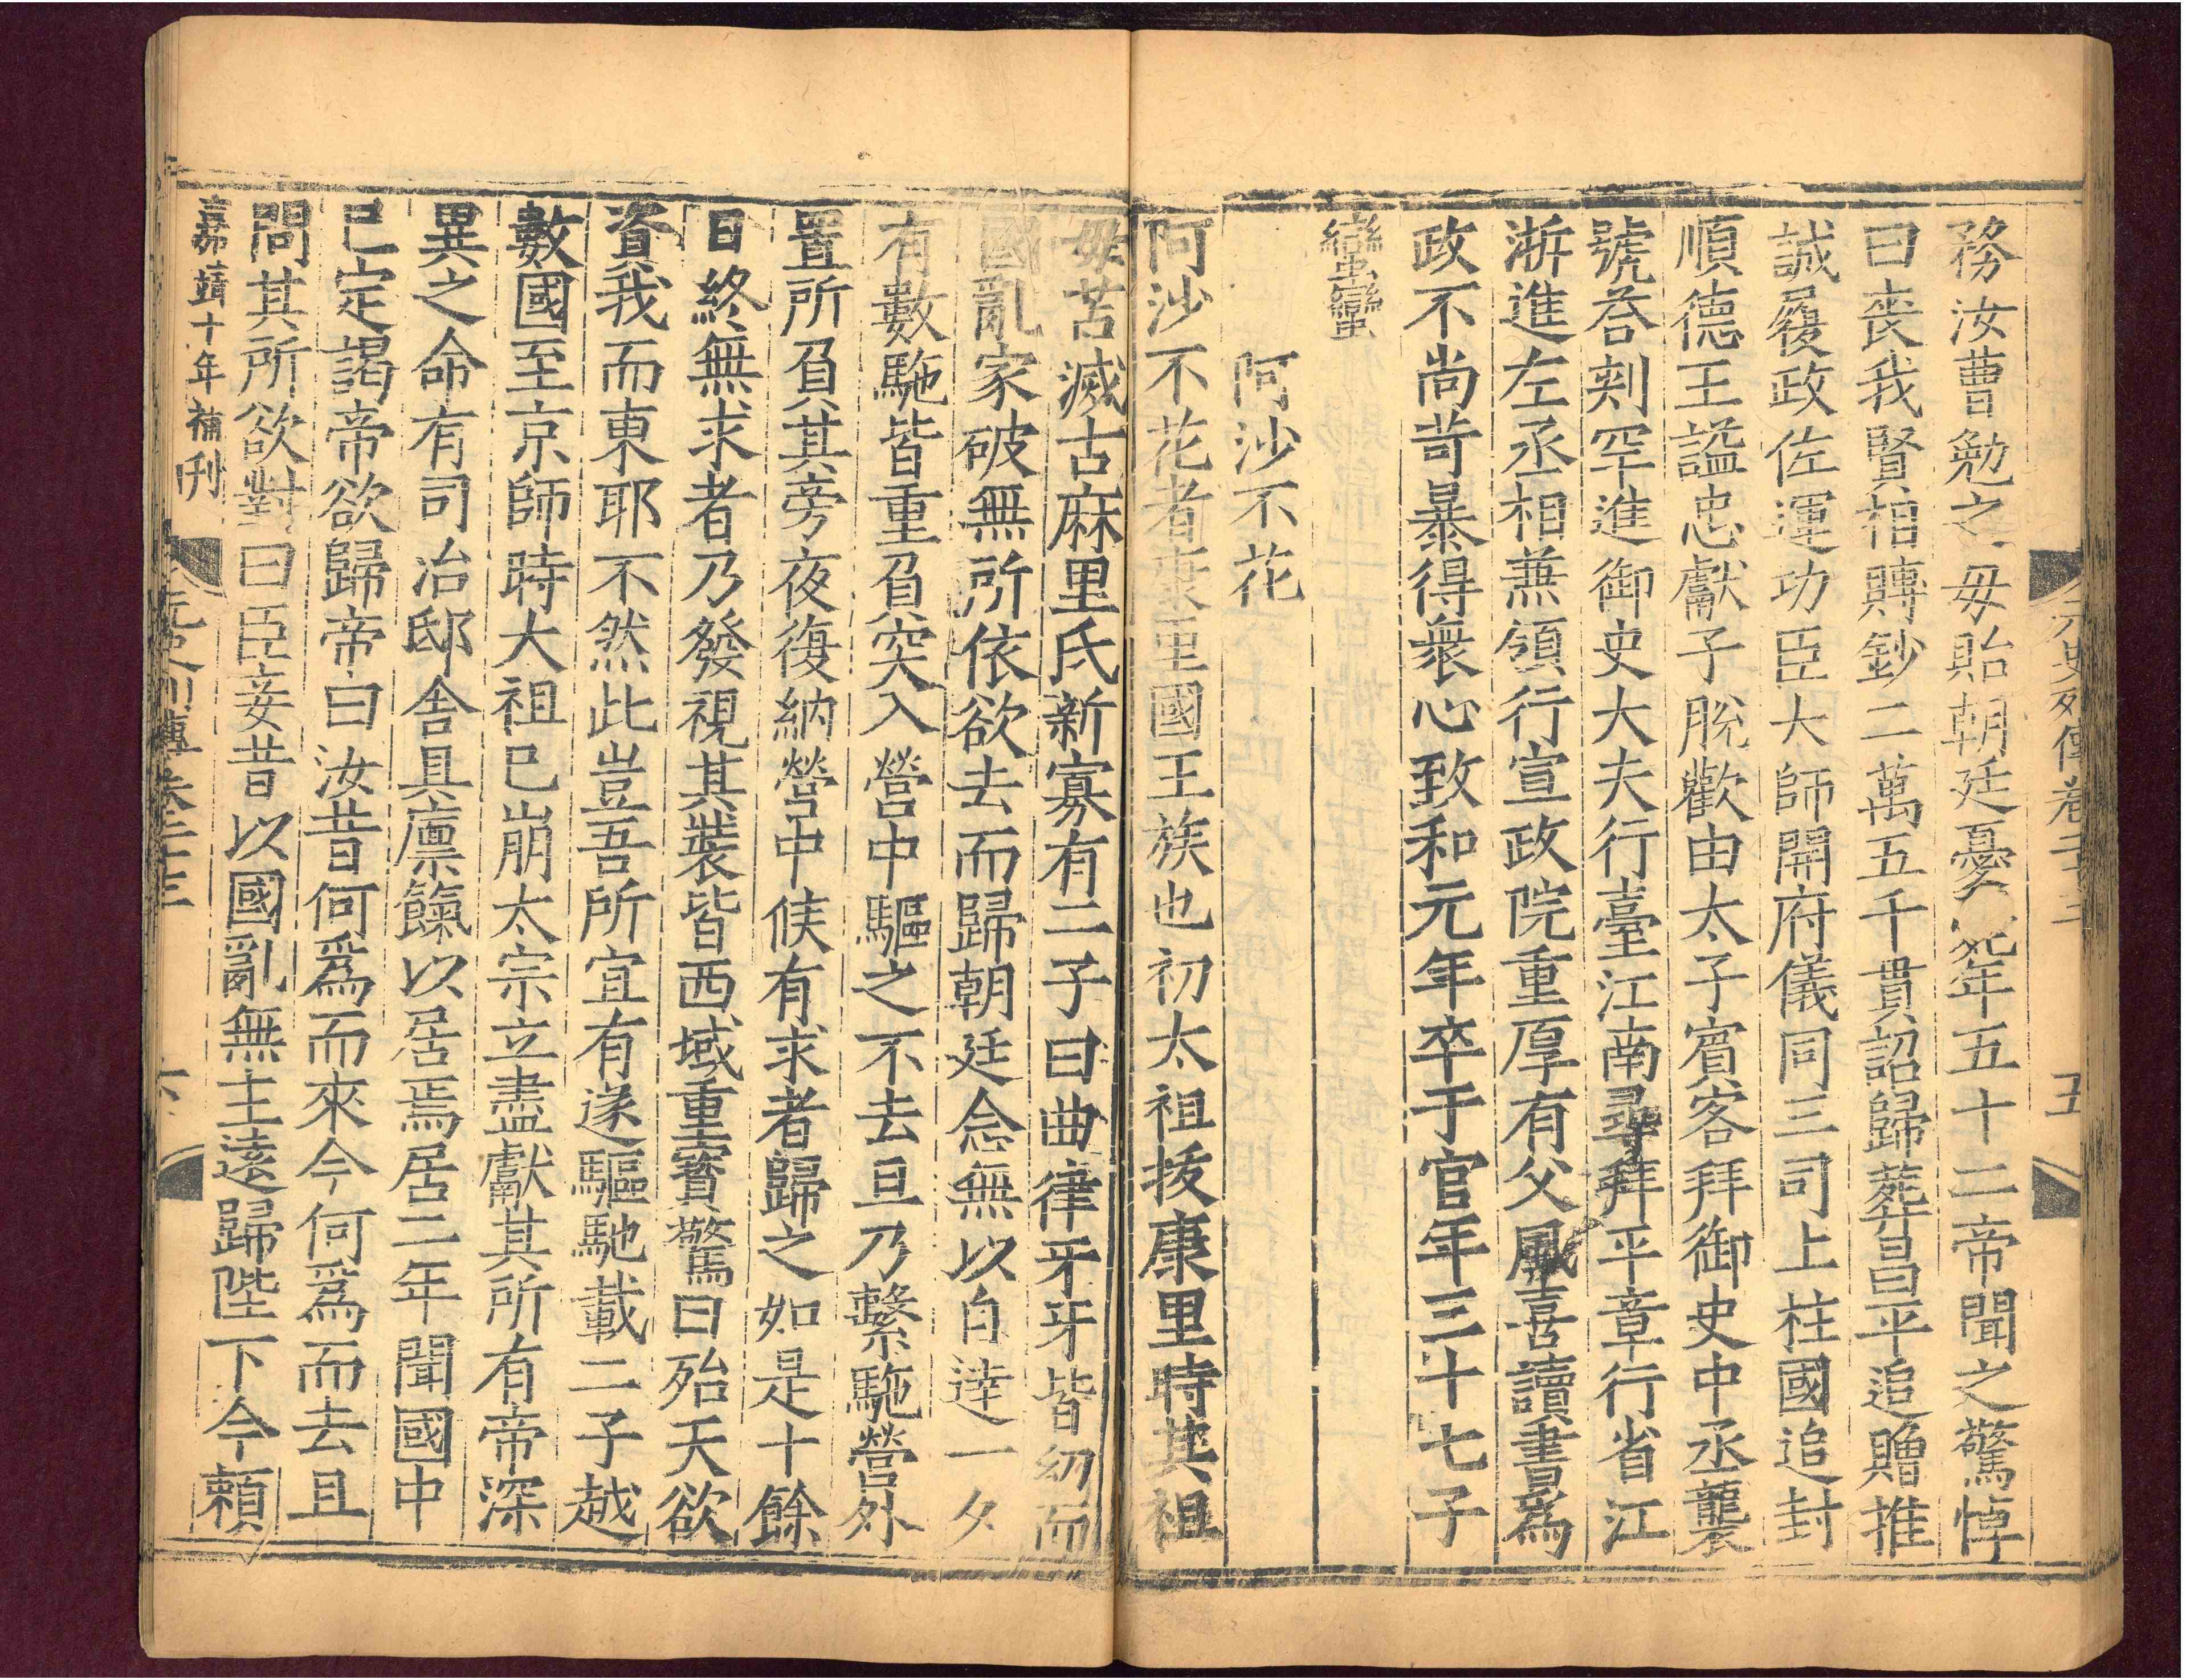 元史列傳卷二十三 五
務汝曹勉之毋貽朝廷憂死年五十二帝聞之驚悼
曰喪我賢相賻鈔二萬五千貫詔歸葬昌平追贈推
誠履政佐運功臣大師開府儀同三司上柱國追封
順德王謚忠獻子脫歡由太子賓客拜御史中丞襲
號荅剌罕進御史大夫行臺江南尋拜平章行省江
浙進左丞相兼領行宣政院重厚有父風喜讀書為
政不尚苛暴得衆心致和元年卒于官年三十七子
蠻蠻
阿沙不花
阿沙不花者康里國王族也初太祖拔康里時其祖
毋苦滅古麻里氏新寡有二子曰曲律牙牙皆幼而
國亂家破無所依欲去而歸朝廷念無以自達一夕
有數駞皆重負突入營中驅之不去旦乃繫駞營外
置所負其旁夜復納營中候有求者歸之如是十餘
日終無求者乃發視其裝皆西域重寶驚曰殆天欲
資我而東耶不然此豈吾所宜有遂驅馳載二子越
數國至京師時大祖已崩太宗立盡獻其所有帝深
異之命有司治邸舍具廩餼以居焉居二年聞國中
已定謁帝欲歸帝曰汝昔何爲而來今何爲而去且
問其所欲對曰臣妾昔以國亂無主遠歸陛下今頼
嘉靖十年補刊
元史列傳卷二十三 六